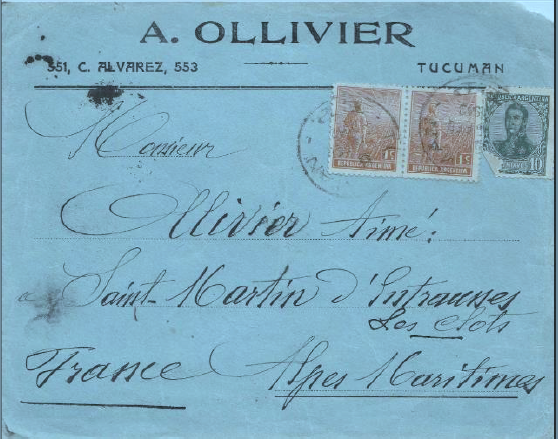 A. OLLIVIER
551, C. ALVAREZ, 553 TUCUMAN
1c 1c 10
REPUBLICA ARGENTINA REPUBLICA ARGENTINA
Monsieur
Ollivier Aimé:
a Saint-Martin d'Entraunes
Les Clots
France Alpes Maritimes